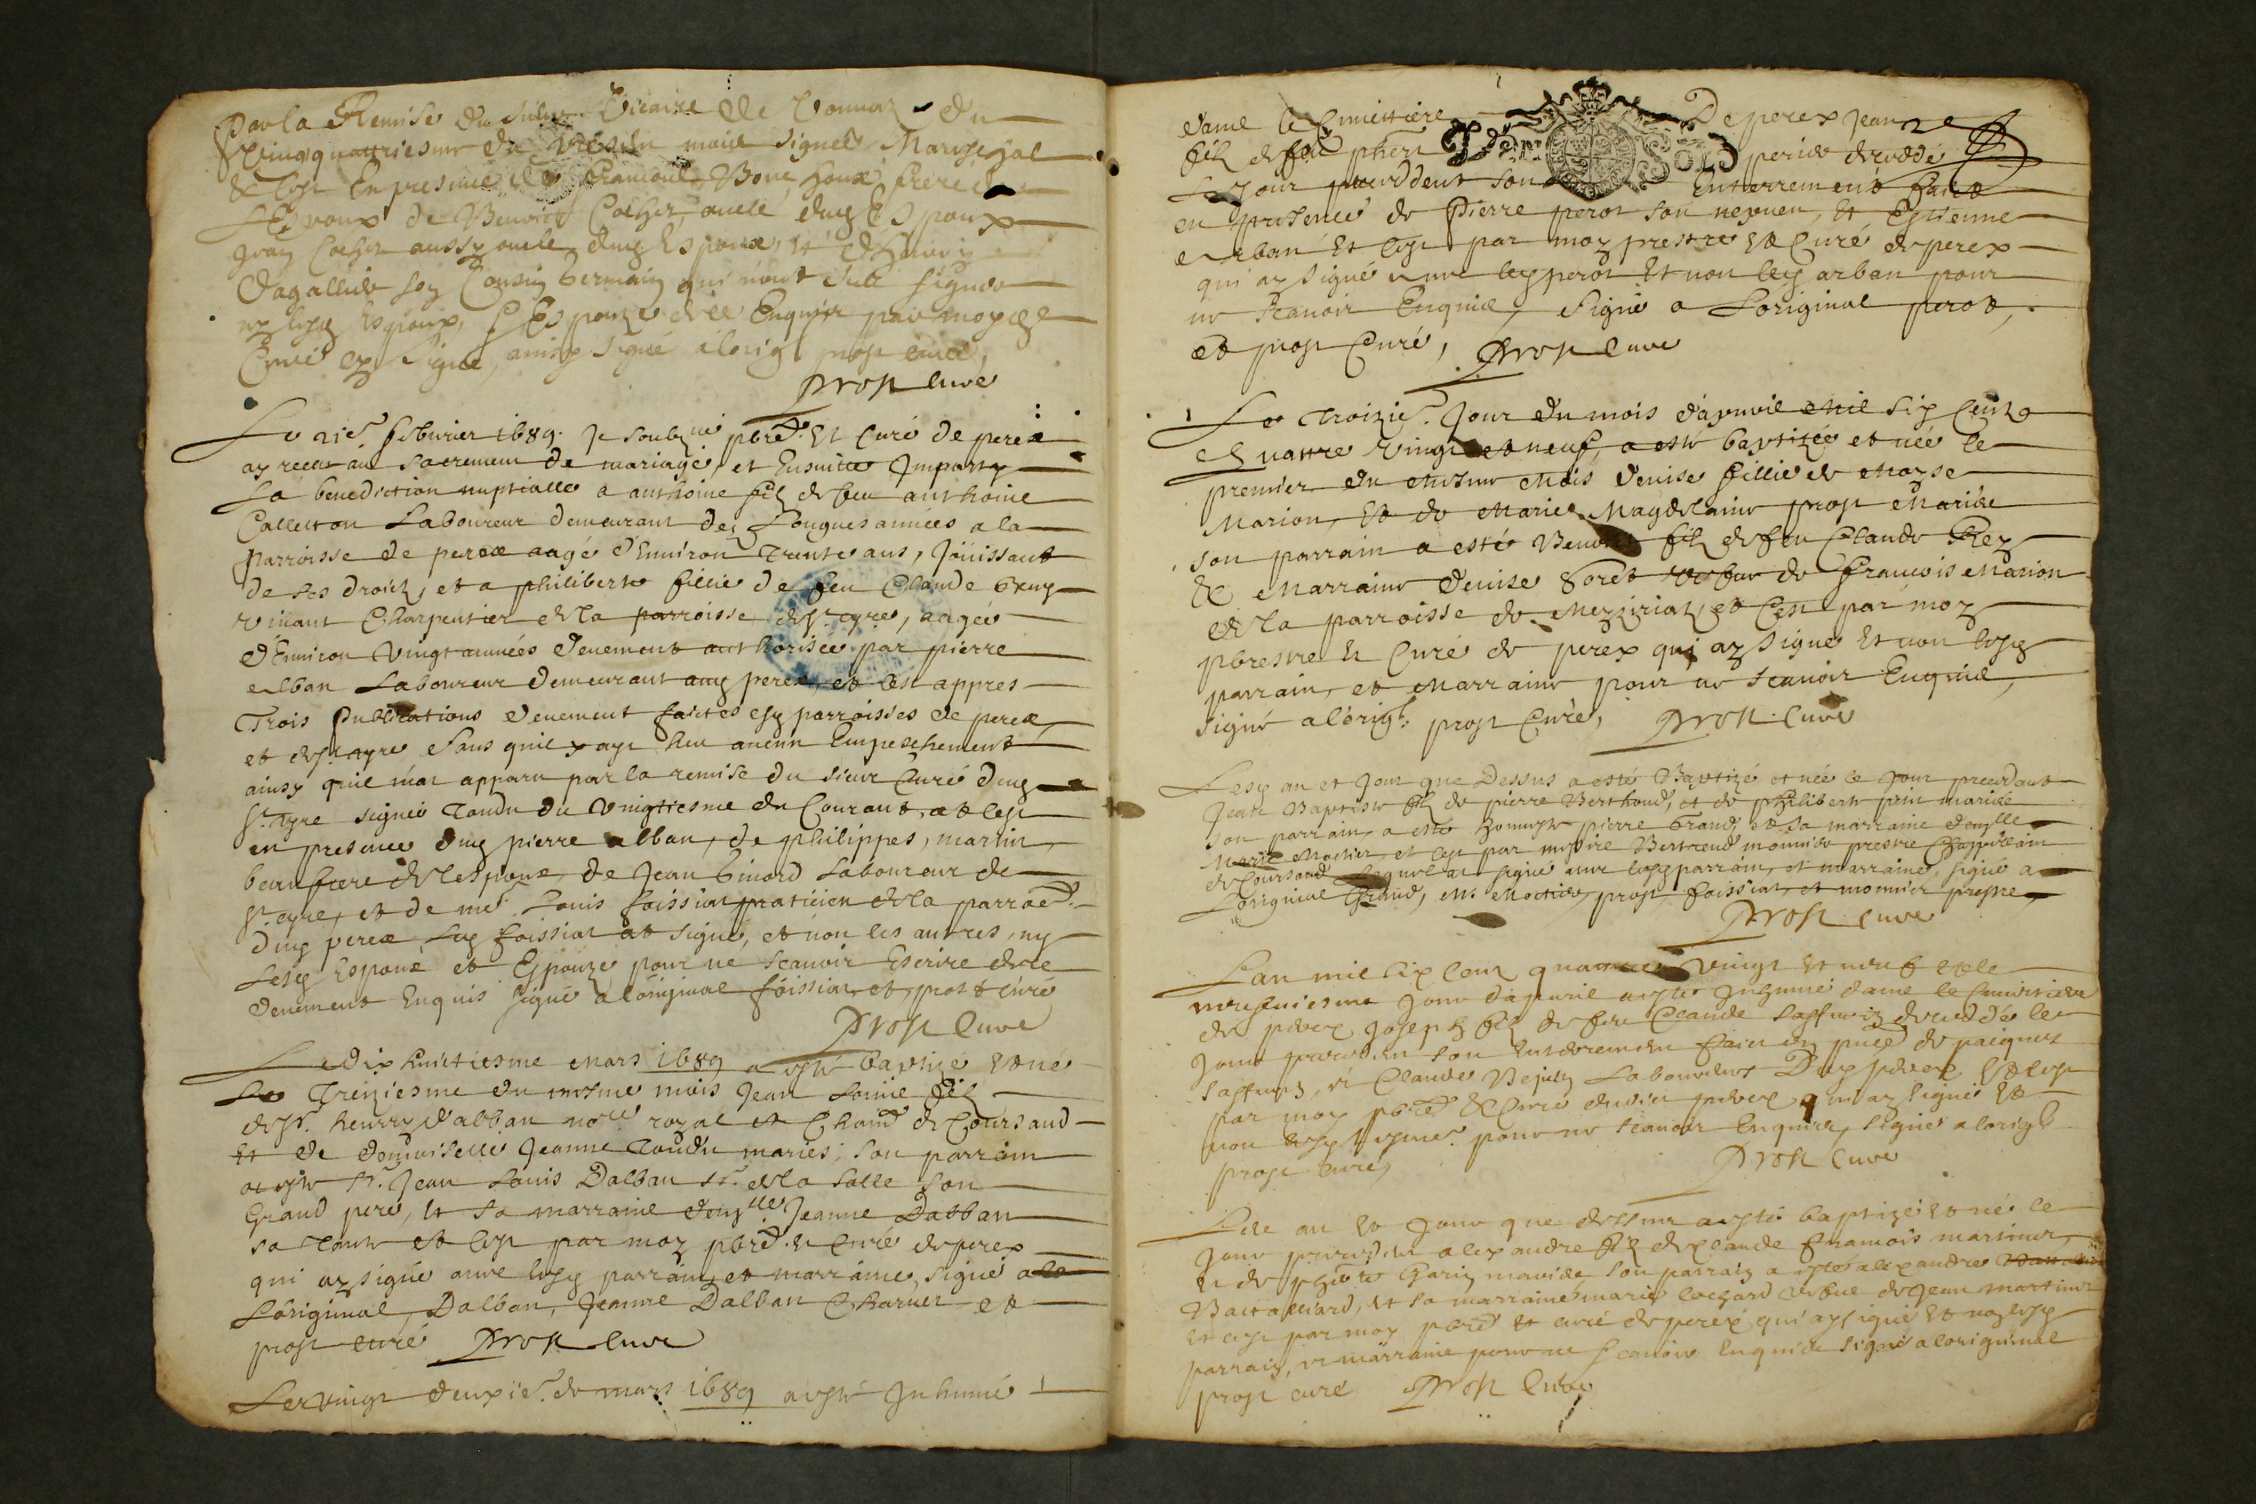 Par la Remise du sieur Vicaire de Vonnaz du
vingt quatriesme du mois signé Mareschal
& c'est En presence de Bonnehoux frere de
L'Espoux de Benoist Cochet oncle dud Espoux
Jean Cochet aussy oncle dud Espoux, et
Dagallier son Cousin Germain qui n'ont sceu signer
ny lesd Espoux, & Espouze de ce Enquis par moy led
Curé ay signé, ainsy signé a lorig prost curé,
Prost cure
Le 21e febvrier 1689. Je soubzné pbre Et Curé de perex
ay receu au sacrement de mariage, et Ensuitte Imparty
La benediction nuptialle a anthoine filz de feu anthoine
Colletton Laboureur demeurant dez Longues années a la
parroisse de perex aagé d'Environ Trente ans, Jouissant
de ses droitz, et a philiberte fillie de feu Claude Gruy
vivant Charpentier de la parroisse de St. Cyre, aagée
d'Environ vingt années deuement authorisée par pierre
alban Laboureur demeurant aud perex, et c'est appres
Trois publications deuement faictes esd parroisses de perex,
et de St Cyre sans quil y aye heu aucun Empeschement
ainsy quil m'at apparu par la remise du sieur Curé dud
St. Cyre signée Tondu du vingtiesme du Courant, et c'est
en presence dud pierre alban, de philippes, martin,
beaufrere de lespoux, de Jean Ginard Laboureur de
St. Cyre, et de me. Louis foissiat praticien de la parroe.
dud perex Led foissiat at signé, et non les autres, ny
Lesd Espoux et Espouze pour ne scavoir Escrire de ce
deuement Enquis signé a loriginal foissiat et prost curé
Prost Cure
Le dix huictiesme Mars 1689 a esté baptizé et né
Le Treiziesme du mesme mois Jean Louis filz
de Sr. henry Dalban nore royal et Chastn de Coursand
Et de damoiselle Jeanne Tondu mariés, son parrain
at esté Sr. Jean Louis Dalban sr. de la Salle son
Grand pere, Et sa marraine damlle Jeanne Dalban
sa Tante et c'est par moy pbre et Curé de perex
qui ay signé avec lesd parrain, et marraine, signé a
Loriginal, Dalban, Jeanne Dalban Charnet et
prost curé Prost Cure
Le vingt deuxie. de mars 1689 a esté Inhumé
dame le Cimettiere De perex Jean
filz de feu perier decedé
Le Jour precedent son Enterrement faict
en presence de Pierre perot son nepveu, Et Estienne
arban Et c'est par moy prestre Et Curé de perex
qui ay signé avec led perot Et non led arban pour
ne scavoir Enquis, Signé a Loriginal perot,
et prost Curé, Prost Cure
Le Troizie. Jour du mois d'apvril Mil six centz
Quattre vingt et neuf, a esté baptizée et née le
premier du mesme Mois Denise fillie de Moyse
Marion, Et de Marie Magdelaine prost Mariés
son parrain a esté Benoist filz de feu Claude Rey
& Marraine Denise Foret de François Marion
de la parroisse de Mezeriat, et C'est par moy
pbrestre Et Curé de perex qui ay signé Et non lesd
parrain, et Marraine pour ne scavoir Enquis,
signé a lorigl. prost Curé, Prost Cure
Lesd an et Jour que Dessus a esté Baptizé et née le Jour precedant
Jean Baptiste filz de pierre Berthoud, et de philiberte prin mariés
son parrain a esté honneste pierre Grand, et sa marraine damlle
Marie Moctier, et c'est par messire Bertrand monnier prestre Chappelain
de Coursand Lequel at signé avec lesd parrain, et marraine, signé a
Loriginal Grand, M. Moctier, prost, foissiat, et monnier prestre
Prost Cure
Lan mil six cent quattre vingt Et neuf et le
neufviesme Jour d'apvril a esté Inhumé dame le Cimistiere
de perex Joseph filz de feu Claude decedé le
Jour precedent son Enterrement faict en prece de
et Claude Bejuy Laboureurs Dud perex Et c'est
par moy pbre & Curé dudict perex qui ay signé Et
non lesd pour ne scavoir Enquis, signé a lorigl
prost curé, Prost Cure
Led an Et Jour que dessus a esté baptizé Et né le
Jour precedent alexandre filz de Claude francois martinet,
Et de phte Garin mariés son parrain a esté alexandre
Et sa marraine marie vefve de Jean martinet
Et c'est par moy pbre Et curé de perex qui ay signé Et non lesd
parrain, et marraine pour ne scavoir Enquis signé a loriginal
prost curé Prost Cure